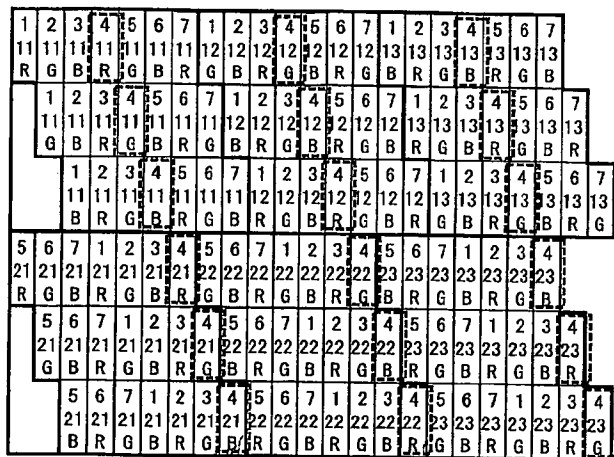 1 2 3 4 5 6 7 1 2 3 4 5 6 7 1 2 3 4 5 6 7
11 11 11 11 11 11 11 12 12 12 12 12 12 12 13 13 13 13 13 13 13
R G B R G B R G B R G B R G B R G B R G B
1 2 3 4 5 6 7 1 2 3 4 5 6 7 1 2 3 4 5 6 7
11 11 11 11 11 11 11 12 12 12 12 12 12 12 13 13 13 13 13 13 13
G B R G B R G B R G B R G B R G B R G B R
1 2 3 4 5 6 7 1 2 3 4 5 6 7 1 2 3 4 5 6 7
11 11 11 11 11 11 11 12 12 12 12 12 12 12 13 13 13 13 13 13 13
B R G B R G B R G B R G B R G B R G B R G
5 6 7 1 2 3 4 5 6 7 1 2 3 4 5 6 7 1 2 3 4
21 21 21 21 21 21 21 22 22 22 22 22 22 22 23 23 23 23 23 23 23
R G B R G B R G B R G B R G B R G B R G B
5 6 7 1 2 3 4 5 6 7 1 2 3 4 5 6 7 1 2 3 4
21 21 21 21 21 21 21 22 22 22 22 22 22 22 23 23 23 23 23 23 23
G B R G B R G B R G B R G B R G B R G B R
5 6 7 1 2 3 4 5 6 7 1 2 3 4 5 6 7 1 2 3 4
21 21 21 21 21 21 21 22 22 22 22 22 22 22 23 23 23 23 23 23 23
B R G B R G B R G B R G B R G B R G B R G